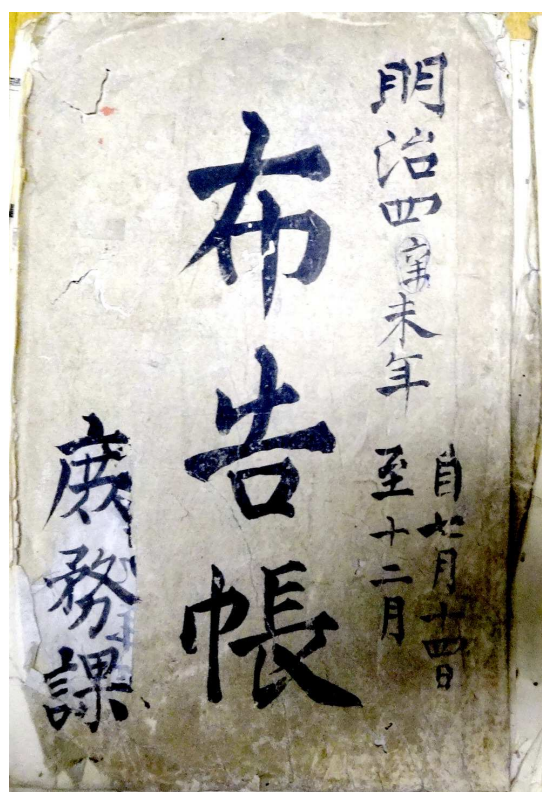 明治四辛未年
自七月十四日
至十二月
布告帳
庶務課